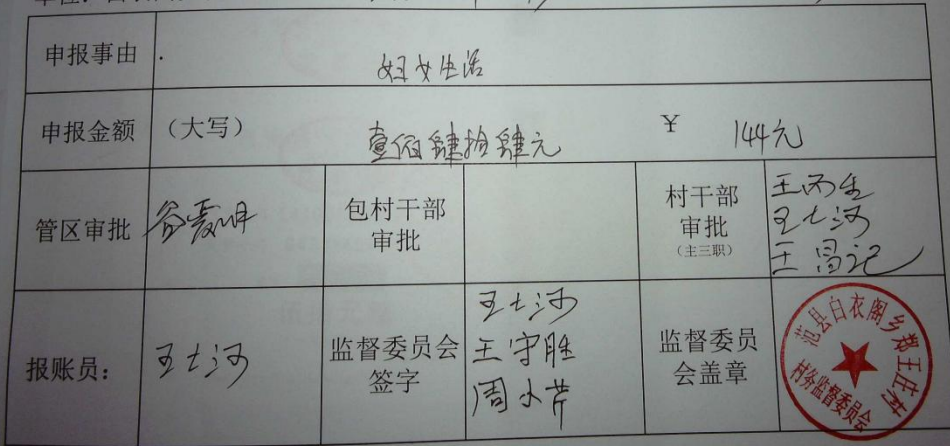 申报事由
妇女生活
申报金额 (大写) 壹佰肆拾肆元 ¥ 144元
管区审批
包村干部
审批
村干部
审批
(主三职)
王丙生
王士河
王昌记
报账员: 王士河
监督委员会
签字
王士河
王守胜
周小芹
监督委员
会盖章
范县白衣阁乡郑王庄村
村务监督委员会